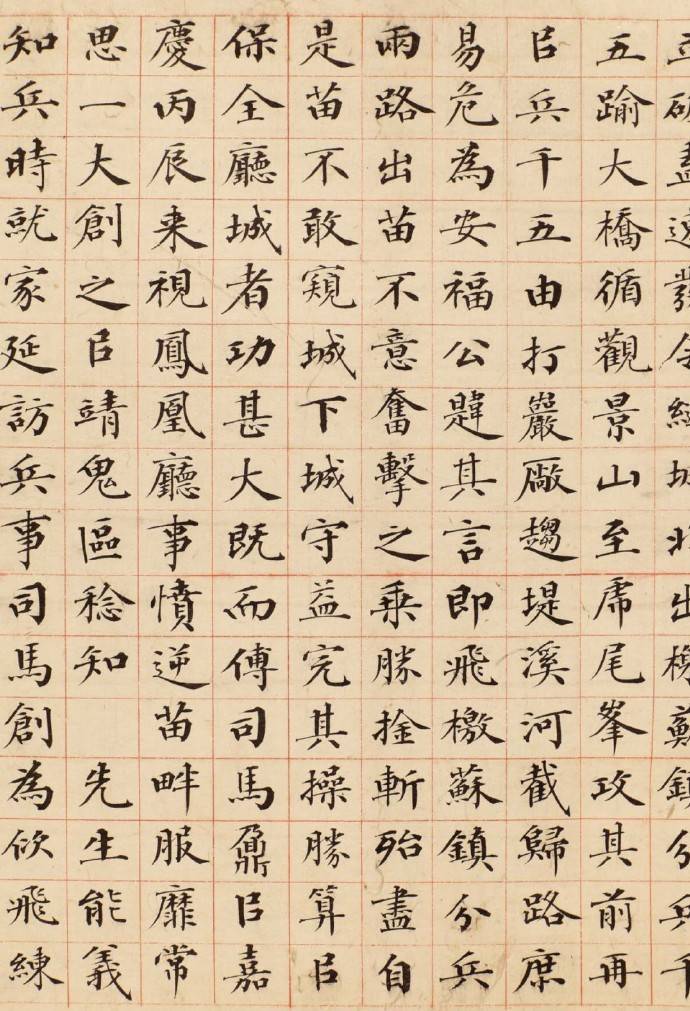 盡
令
出
五踰大橋循觀景山至虎尾峯攻其前再
㠯兵千五由打巖厰趨堤溪河截歸路庶
易危為安福公韙其言即飛檄蘇鎮分兵
兩路出苗不意奮擊之乗勝捦斬殆盡自
是苗不敢窺城下城守益完其操勝算㠯
保全廳城者功甚大既而傅司馬鼐㠯嘉
慶丙辰来視鳳凰廳事憤逆苗畔服靡常
思一大創之㠯靖鬼區稔知 先生能義
知兵時就家延訪兵事司馬創為佽飛練